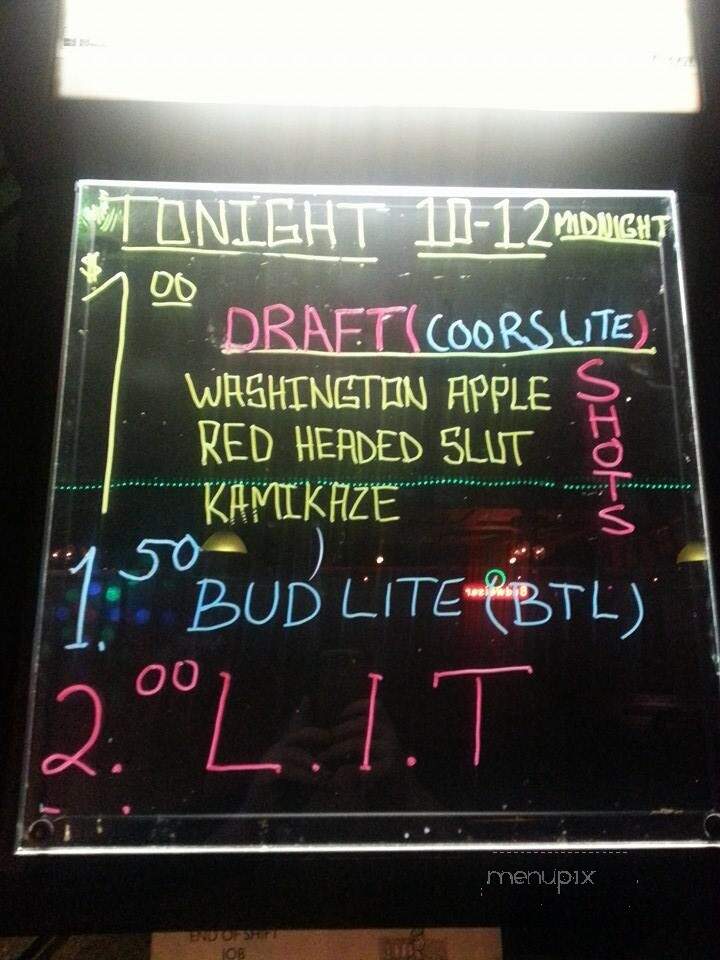 TONIGHT 10-12 MIDNIGHT
$1 00
DRAFT (COORS LITE)
WASHINGTON APPLE
RED HEADED SLUT
KAMIKAZE
SHOTS
1.50 BUD LITE (BTL)
2.00 L.I.T
menupix
END OF SHIFT
JOB